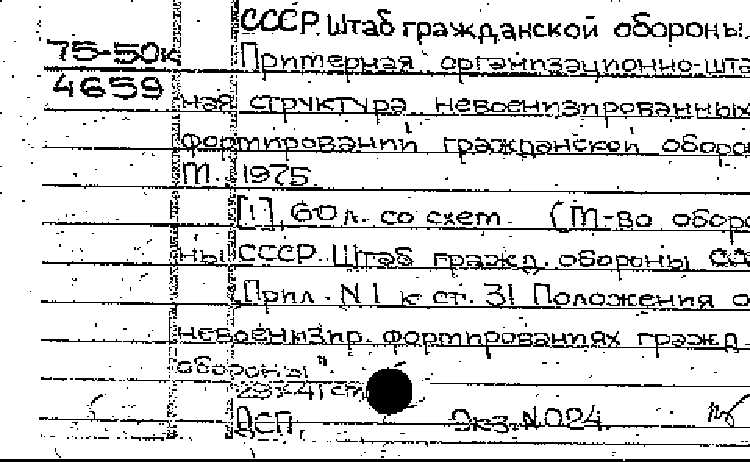 СССР. Штаб гражданской обороны.
75-50к
Примерная организационно-шта
4659
ная структура невоенизированных
формирований гражданской оборо
М., 1975.
[1], 60 л. со схем. (М-во оборо
ны СССР. Штаб гражд. обороны СССР
Прил. N 1 к ст. 31 Положения о
невоенизир. формированиях гражд.
обороны".
29х41 см
ДСП. Экз. N 024.